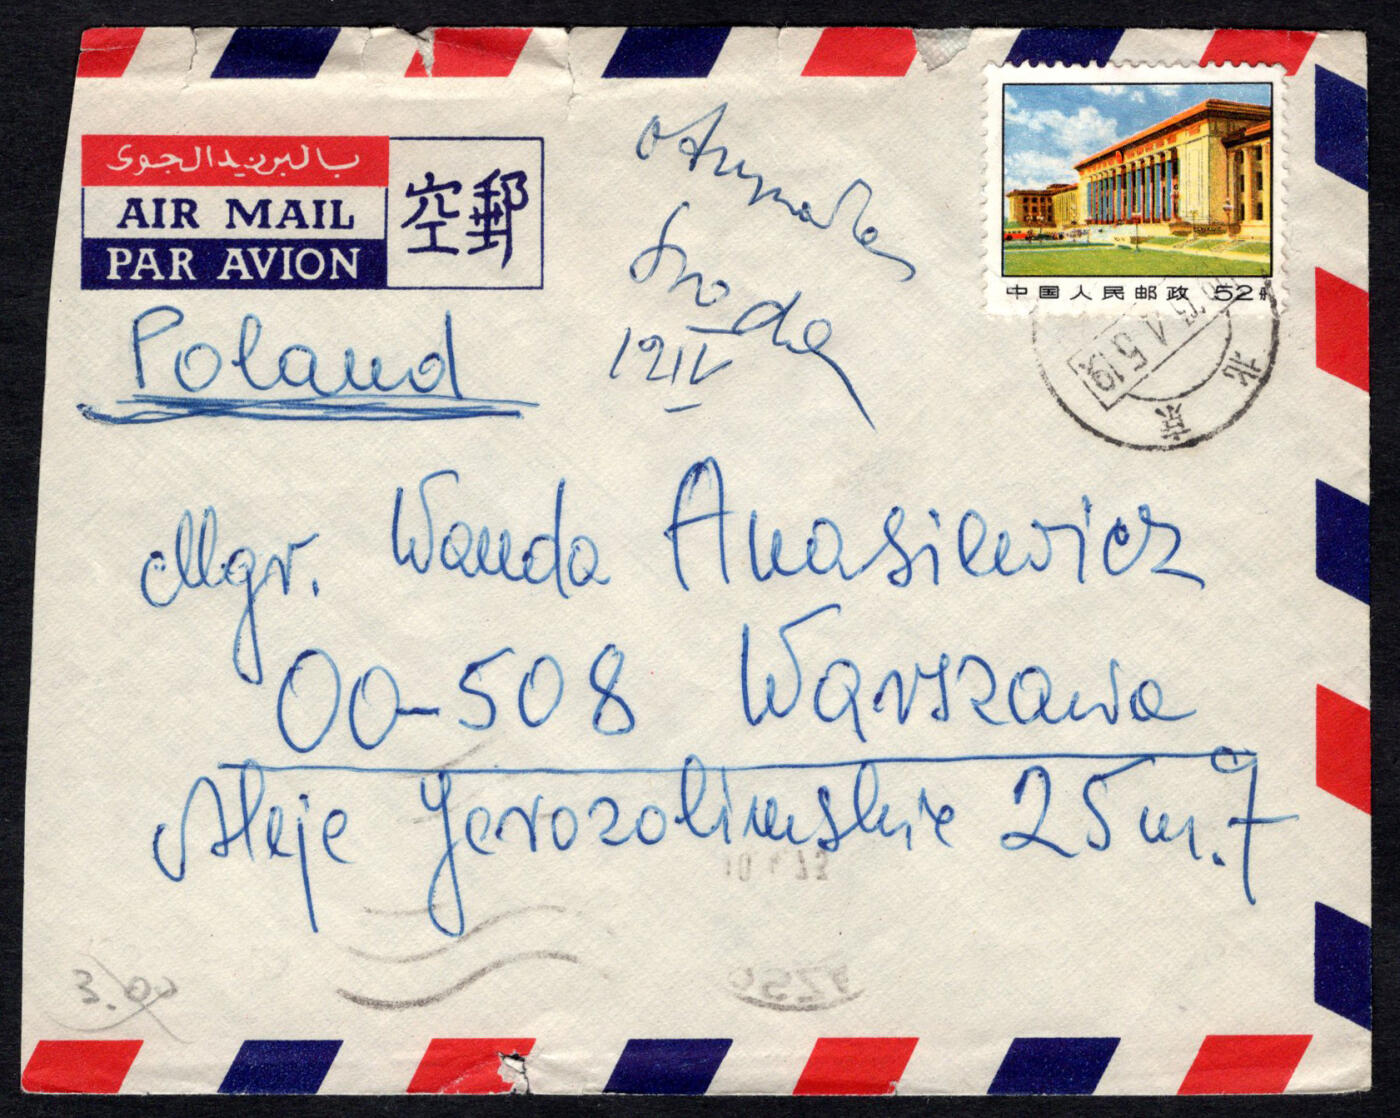 بالبريد الجوى
AIR MAIL
PAR AVION
空郵
中国人民邮政 52分
北京
Poland
otrzymałam
Środa
12 IV
Mgr. Wanda Anasiewicz
00-508 Warszawa
Aleje Jerozolimskie 25 m. 7
3.00